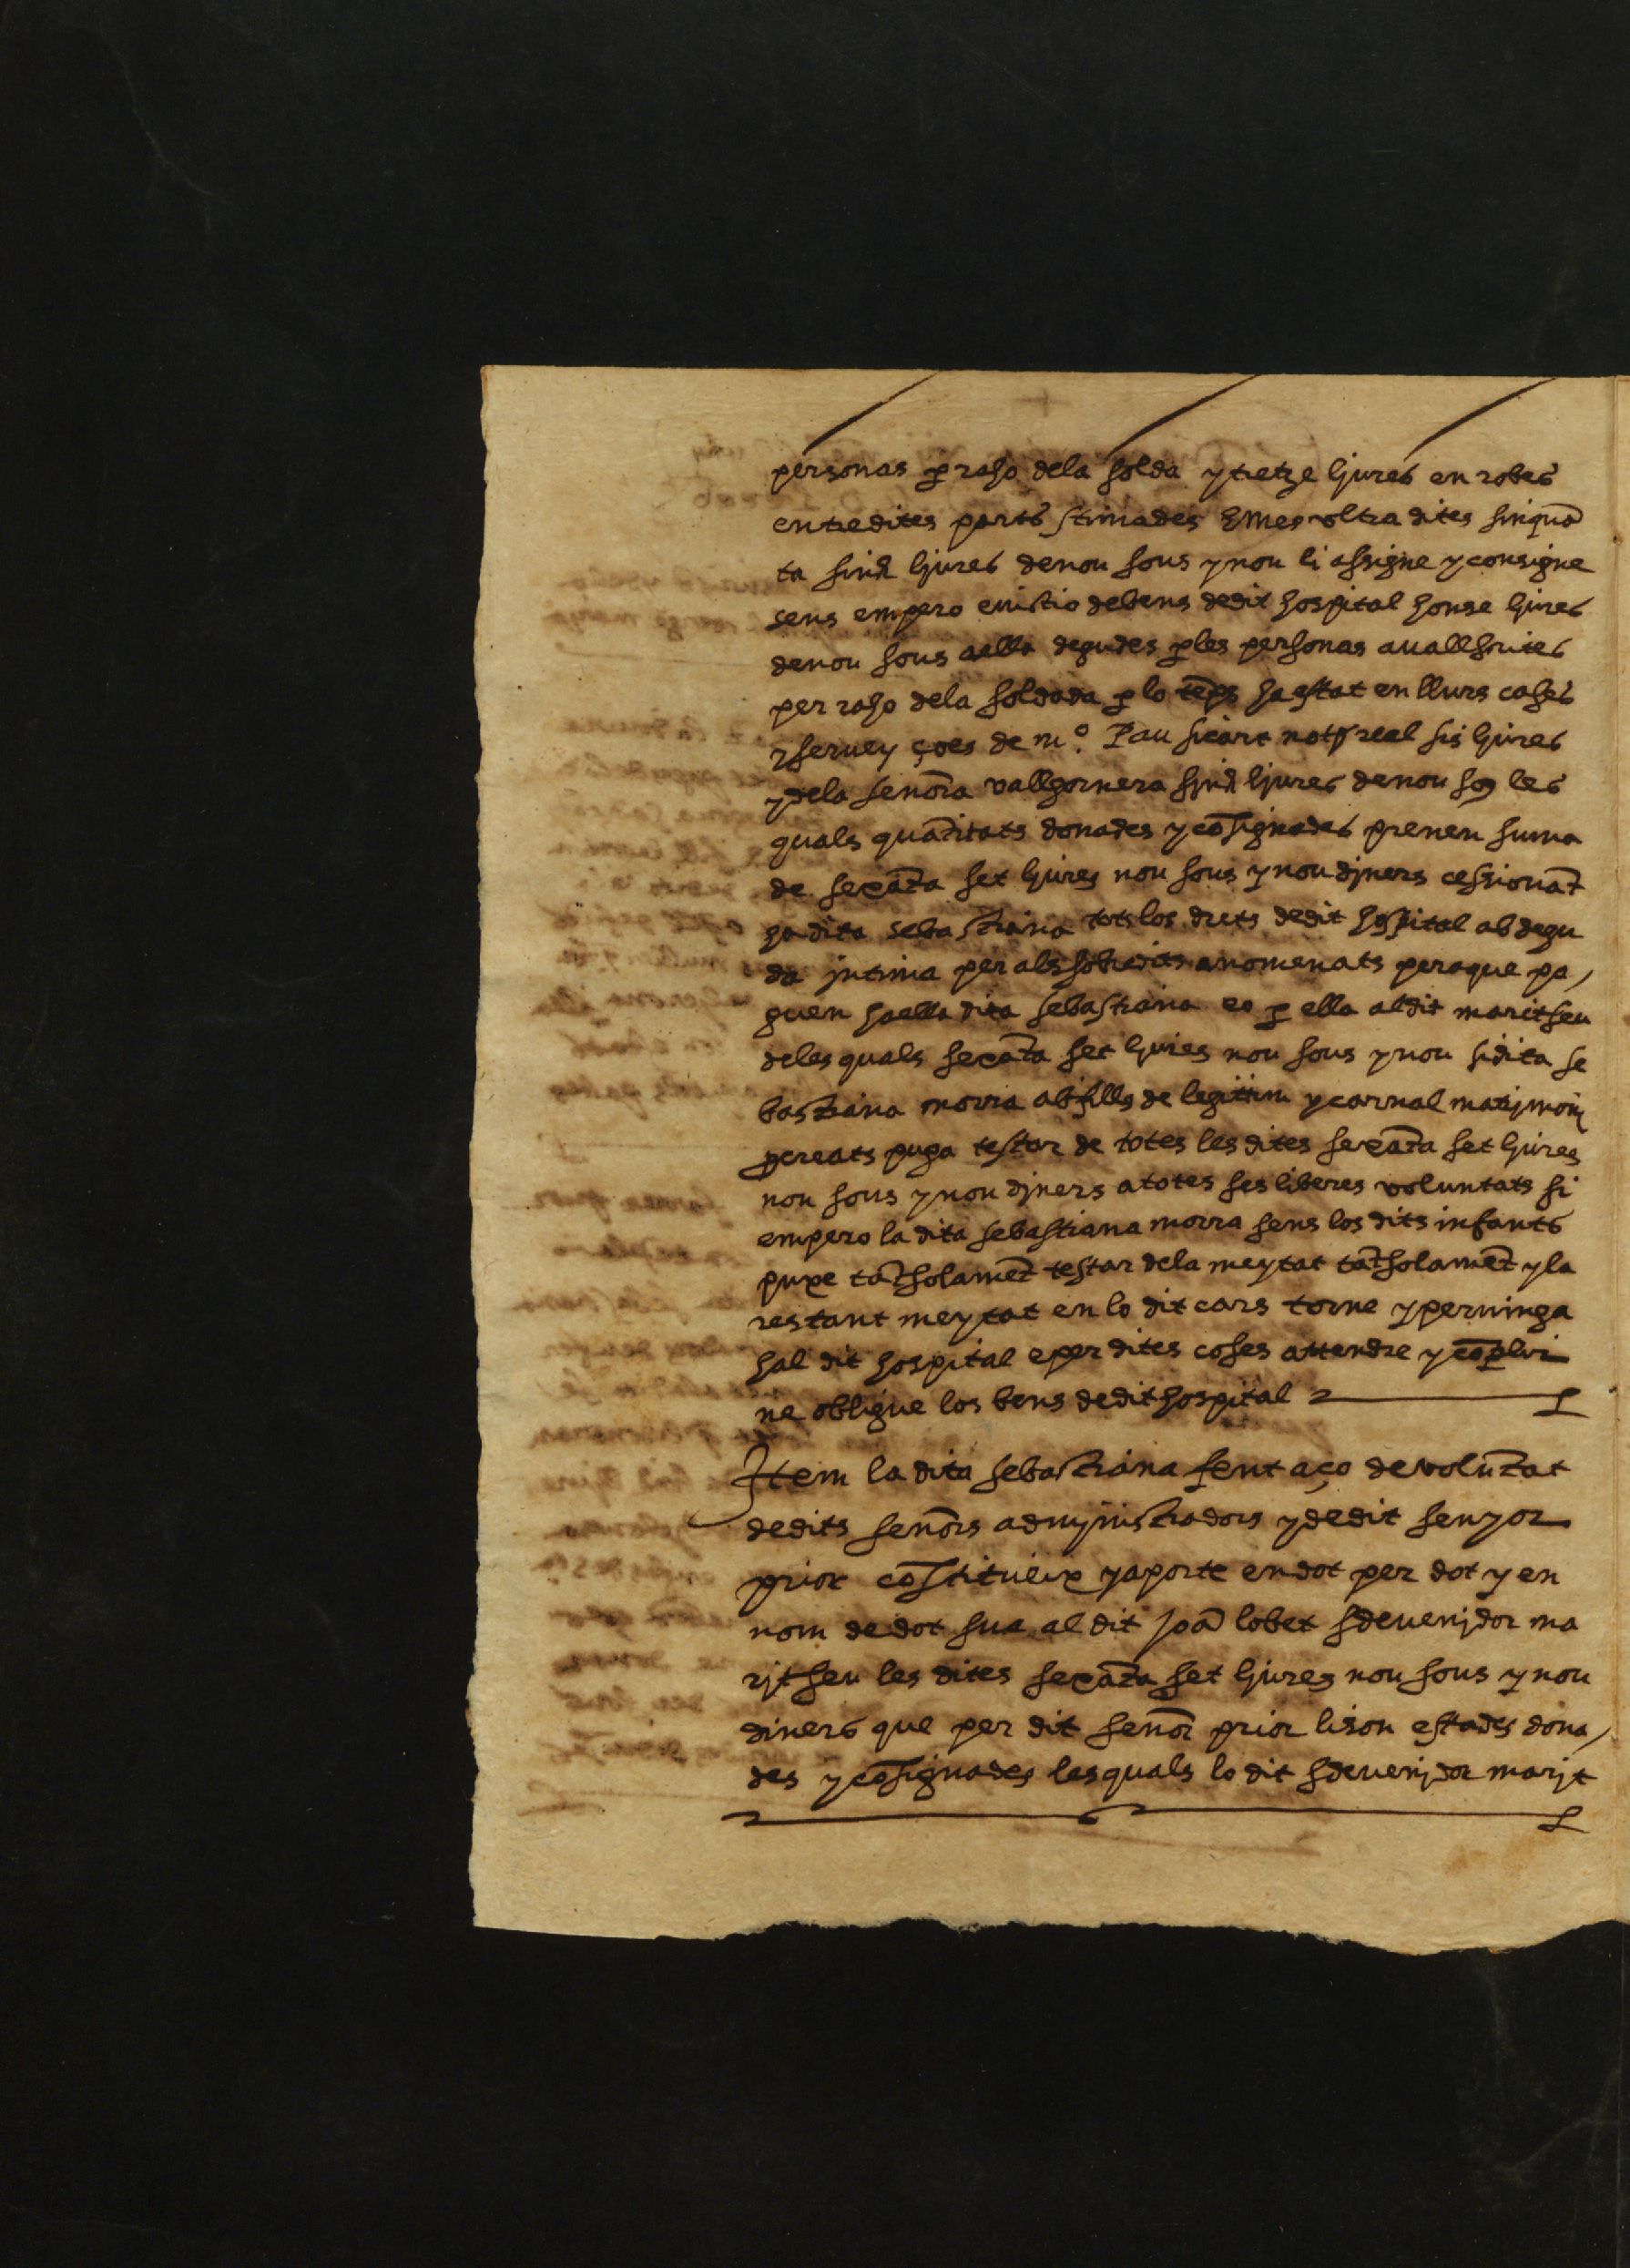 personas p raho dela solda y tretze ljures en robes
entredites parts stimades E mes ultra dites sinquā
ta sinch ljures denou sous y nou li assigne y consigne
sens empero evictio debens dedit hospital honse ljures
denou sous aella degudes p les personas avall scrites
per raho dela soldada p lo tēps ha estat en llurs cases
y servey ço es de mº. Pau sicart not real sis ljures
y dela senōra vallgornera sinch ljures denou sos les
quals quātitats donades y cōsignades prenen suma
de sexāta set ljures nou sous y nou djners cessionāt
ha dita sebastiana tots los drets dedit hospital ab degu
da jntima per als sobredits anomenats peraque pa,
guen ha ella dita sebastiana eo p ella al dit marit seu
deles quals sexāta set ljures nou sous y nou si dita se
bastiana morra ab fills de legitim y carnal matrjmonj
pcreats puga testar de totes les dites sexāta set ljures
nou sous y nou djners a totes ses liberes voluntats si
empero la dita sebastiana morra sens los dits infants
puxe tātsolamēt testar dela meytat tātsolamēt y la
restant meytat en lo dit cars torne y perninga
hal dit hospital e per dites coses attendre y cōplir
ne obligue los bens dedit hospital
Item la dita sebastiana fent aço de volūtat
dedits senōrs admjnistradors y dedit senyor
prior cōstitueix y aporte en dot per dot y en
nom de dot sua al dit joā lobet sdevenjdor ma
rjt seu les dites sexāta set ljures nou sous y nou
diners que per dit senōr prior li son estades dona,
des y cōsignades les quals lo dit sdevenjdor marjt